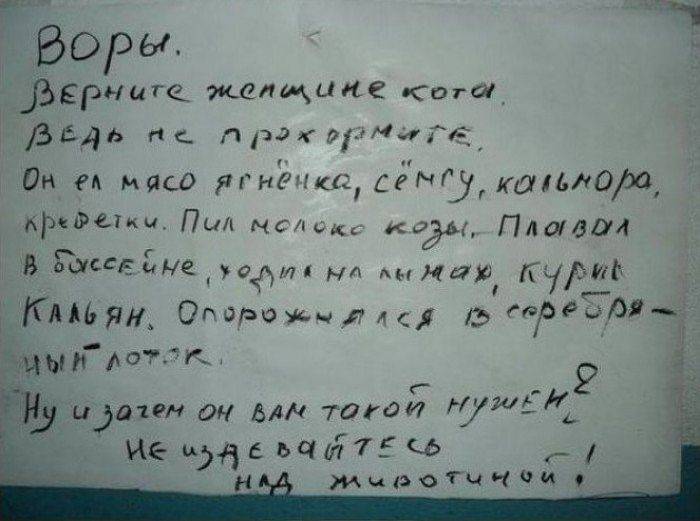 Воры.
Верните женщине кота.
Ведь не прокормите.
Он ел мясо ягнёнка, сёмгу, кальмара,
креветки. Пил молоко козы. Плавал
в бассейне, ходил на лыжах, курил
кальян. Опорожнялся в серебря-
ный лоток.
Ну и зачем он вам такой нужен?
Не издевайтесь
над животиной!